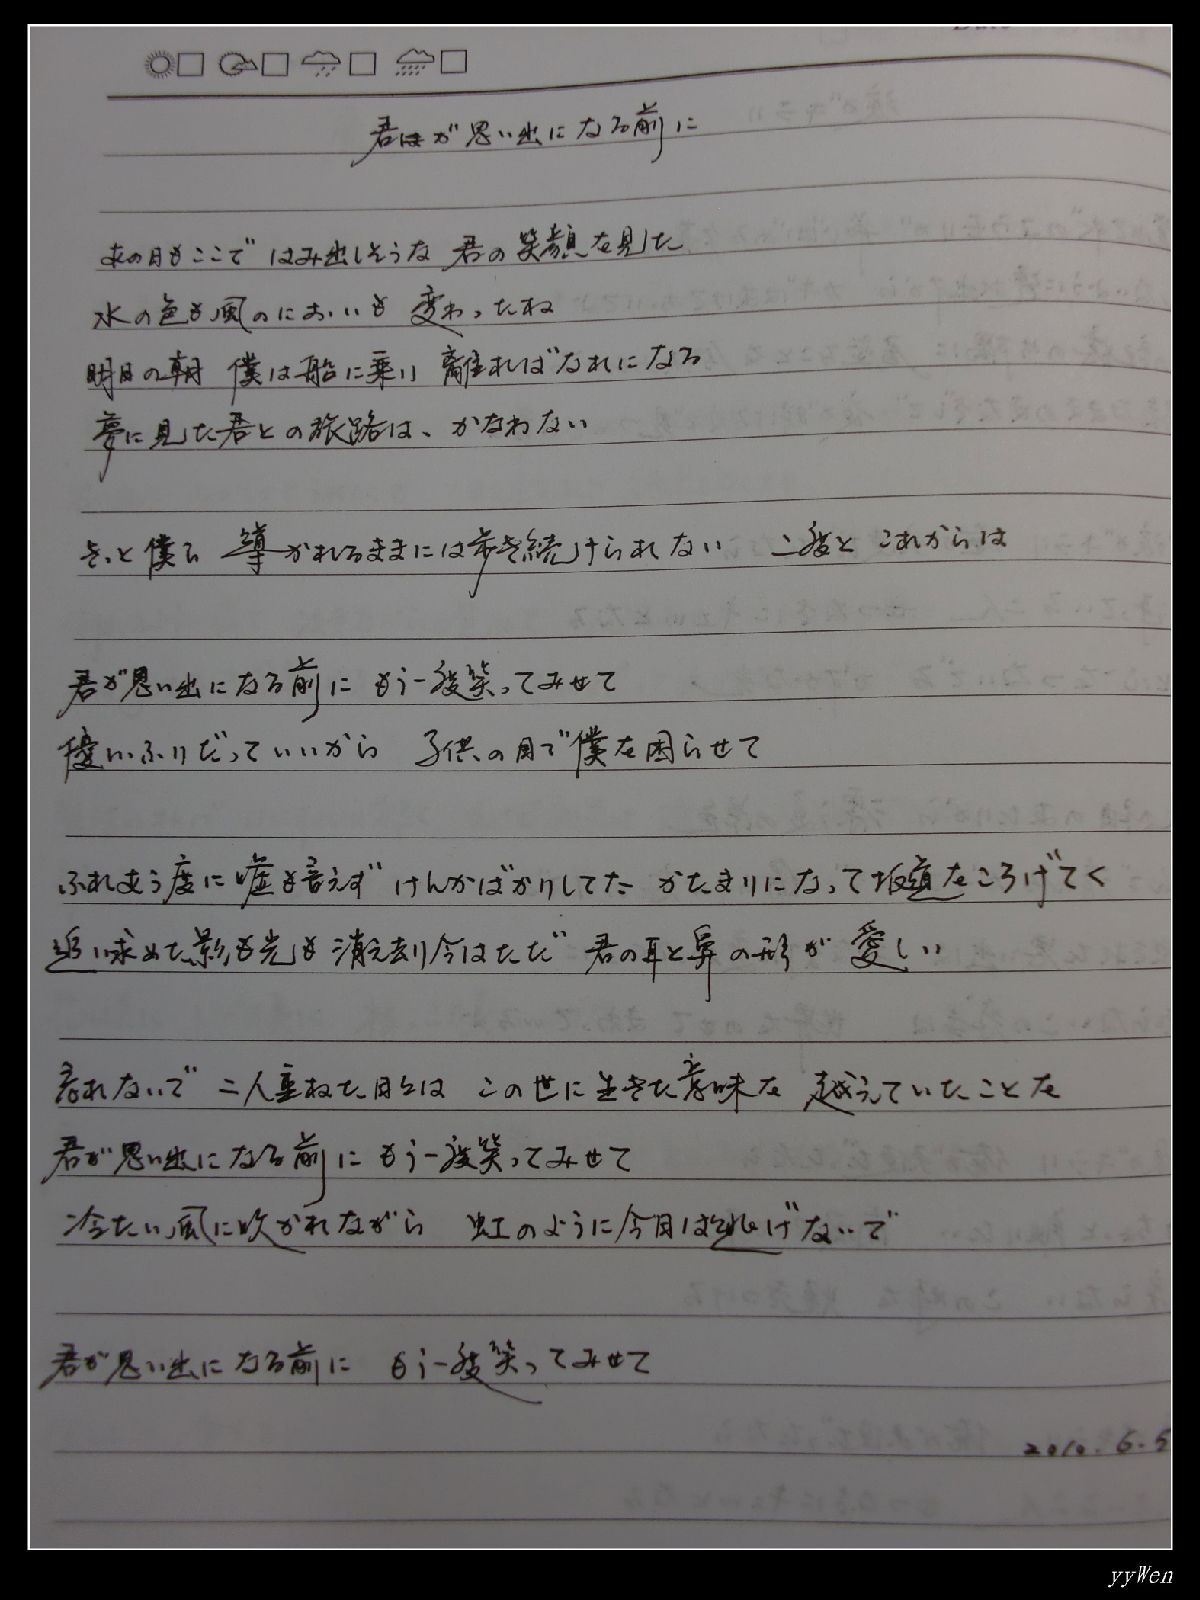 君が思い出になる前に
あの日もここで はみ出しそうな 君の笑顔を見た
水の色も風のにおいも 変わったね
明日の朝 僕は船に乗り 離ればなれになる
夢に見た君との旅路は、かなわない
きっと僕ら 導かれるままには歩き続けられない 二度と これからは
君が思い出になる前に もう一度笑ってみせて
優しいふりだっていいから 子供の目で僕を困らせて
ふれあう度に嘘も言えず けんかばかりしてた かたまりになって坂道をころげてく
追い求めた影も光も 消え去り今はただ 君の耳と鼻の形が 愛しい
忘れないで 二人重ねた日々は この世に生きた意味を 越えていたことを
君が思い出になる前に もう一度笑ってみせて
冷たい風に吹かれながら 虹のように今日は逃げないで
君が思い出になる前に もう一度笑ってみせて
2010.6.5
yyWen